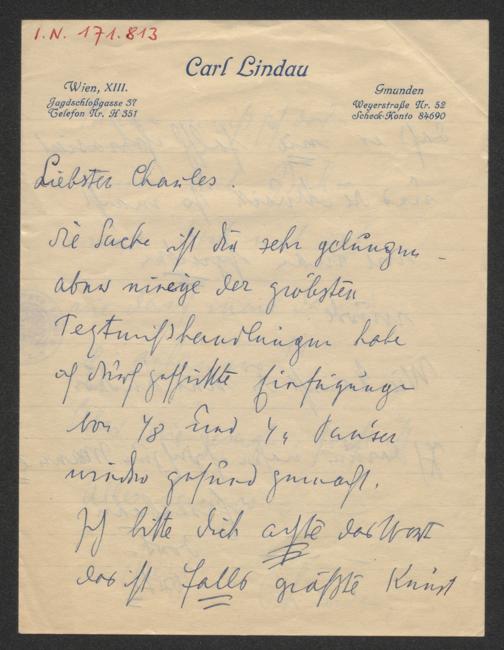 I.N. 171.813
Carl Lindau
Wien, XIII.
Jagdschloßgasse 37
Telefon Nr. H 351
Gmunden
Wegerstraße Nr. 52
Scheck-Konto 84690
Liebster Charles.
die Sache ist dir sehr gelungen –
aber einige der gröbsten
Textmißhandlungen habe
ich durch geschickte Einfügungen
von 1/8 und 1/4 Pausen
wieder gesund gemacht.
Ich bitte dich achte das Wort
das ist falls größte Kunst